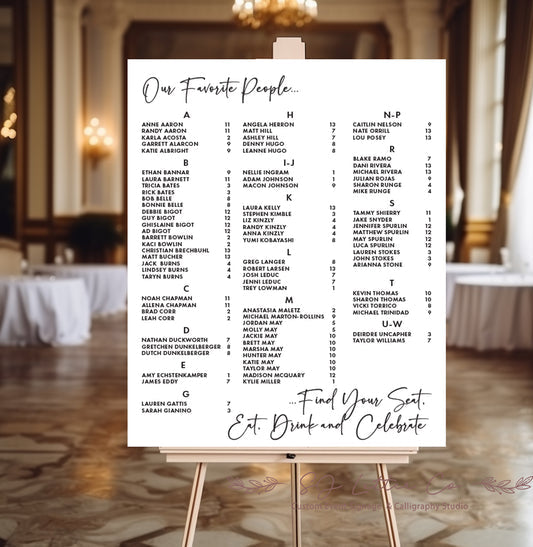 Our Favorite People...
A
ANNE AARON 11
RANDY AARON 11
KARLA ACOSTA 2
GARRETT ALARCON 9
KATIE ALBRIGHT 9
B
ETHAN BANNAR 9
LAURA BARNETT 11
TRICIA BATES 3
RICK BATES 3
BOB BELLE 8
BONNIE BELLE 8
DEBBIE BIGOT 12
GUY BIGOT 12
GHISLAINE BIGOT 12
AD BIGOT 12
BARRETT BOWLIN 2
KACI BOWLIN 2
CHRISTIAN BRECHBUHL 13
MATT BUCHER 13
JACK BURNS 4
LINDSEY BURNS 4
TARYN BURNS 4
C
NOAH CHAPMAN 11
ALLENA CHAPMAN 11
BRAD CORR 2
LEAH CORR 2
D
NATHAN DUCKWORTH 7
GRETCHEN DUNKELBERGER 8
DUTCH DUNKELBERGER 8
E
AMY ECHSTENKAMPER 1
JAMES EDDY 7
G
LAUREN GATTIS 7
SARAH GIANINO 3
H
ANGELA HERRON 13
MATT HILL 7
ASHLEY HILL 7
DENNY HUGO 8
LEANNE HUGO 8
I-J
NELLIE INGRAM 1
ADAM JOHNSON 1
MACON JOHNSON 9
K
LAURA KELLY 13
STEPHEN KIMBLE 3
LIZ KINZLY 4
RANDY KINZLY 4
ANNA KINZLY 4
YUMI KOBAYASHI 8
L
GREG LANGER 8
ROBERT LARSEN 13
JOSH LEDUC 7
JENNI LEDUC 7
TREY LOWMAN 1
M
ANASTASIA MALETZ 2
MICHAEL MARTON-ROLLINS 9
JORDAN MAY 5
MOLLY MAY 5
JACKIE MAY 10
BRETT MAY 10
MARSHA MAY 10
HUNTER MAY 10
KATIE MAY 10
TAYLOR MAY 10
MADISON MCQUARY 12
KYLIE MILLER 1
N-P
CAITLIN NELSON 9
NATE ORRILL 13
LOU POSEY 13
R
BLAKE RAMO 7
DANI RIVERA 13
MICHAEL RIVERA 13
JULIAN ROJAS 9
SHARON RUNGE 4
MIKE RUNGE 4
S
TAMMY SHIERRY 11
JAKE SNYDER 1
JENNIFER SPURLIN 12
MATTHEW SPURLIN 12
MAY SPURLIN 12
LUCA SPURLIN 12
LAUREN STOKES 3
JOHN STOKES 3
ARIANNA STONE 9
T
KEVIN THOMAS 10
SHARON THOMAS 10
VICKI TORRICO 8
MICHAEL TRINIDAD 9
U-W
DEIRDRE UNCAPHER 3
TAYLOR WILLIAMS 7
...Find Your Seat,
Eat, Drink and Celebrate
Custom Event Signage & Calligraphy Studio